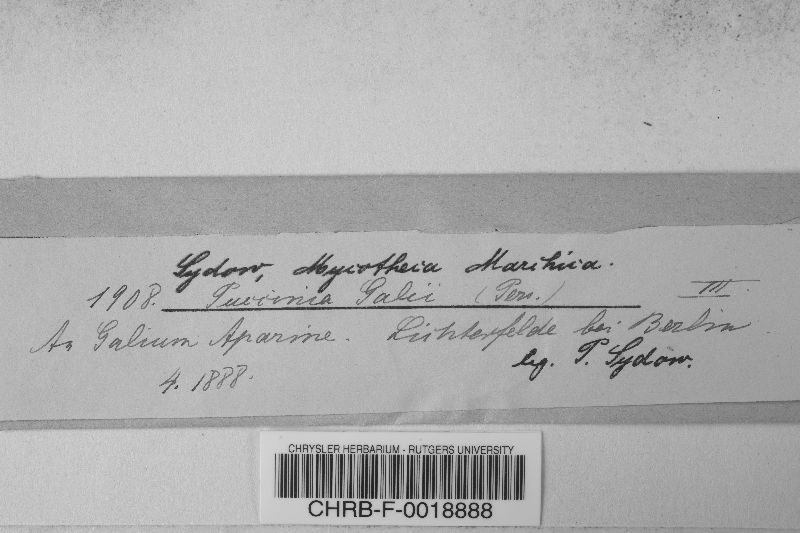 Sydow, Mycotheca Marchica.
1908. Puccinia Galii (Pers.) III.
An Galium Aparine. Lichterfelde bei Berlin.
4. 1888. leg. P. Sydow.
CHRYSLER HERBARIUM - RUTGERS UNIVERSITY
CHRB-F-0018888